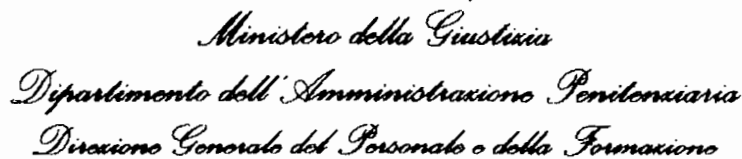 Ministero della Giustizia
Dipartimento dell'Amministrazione Penitenziaria
Direzione Generale del Personale e della Formazione